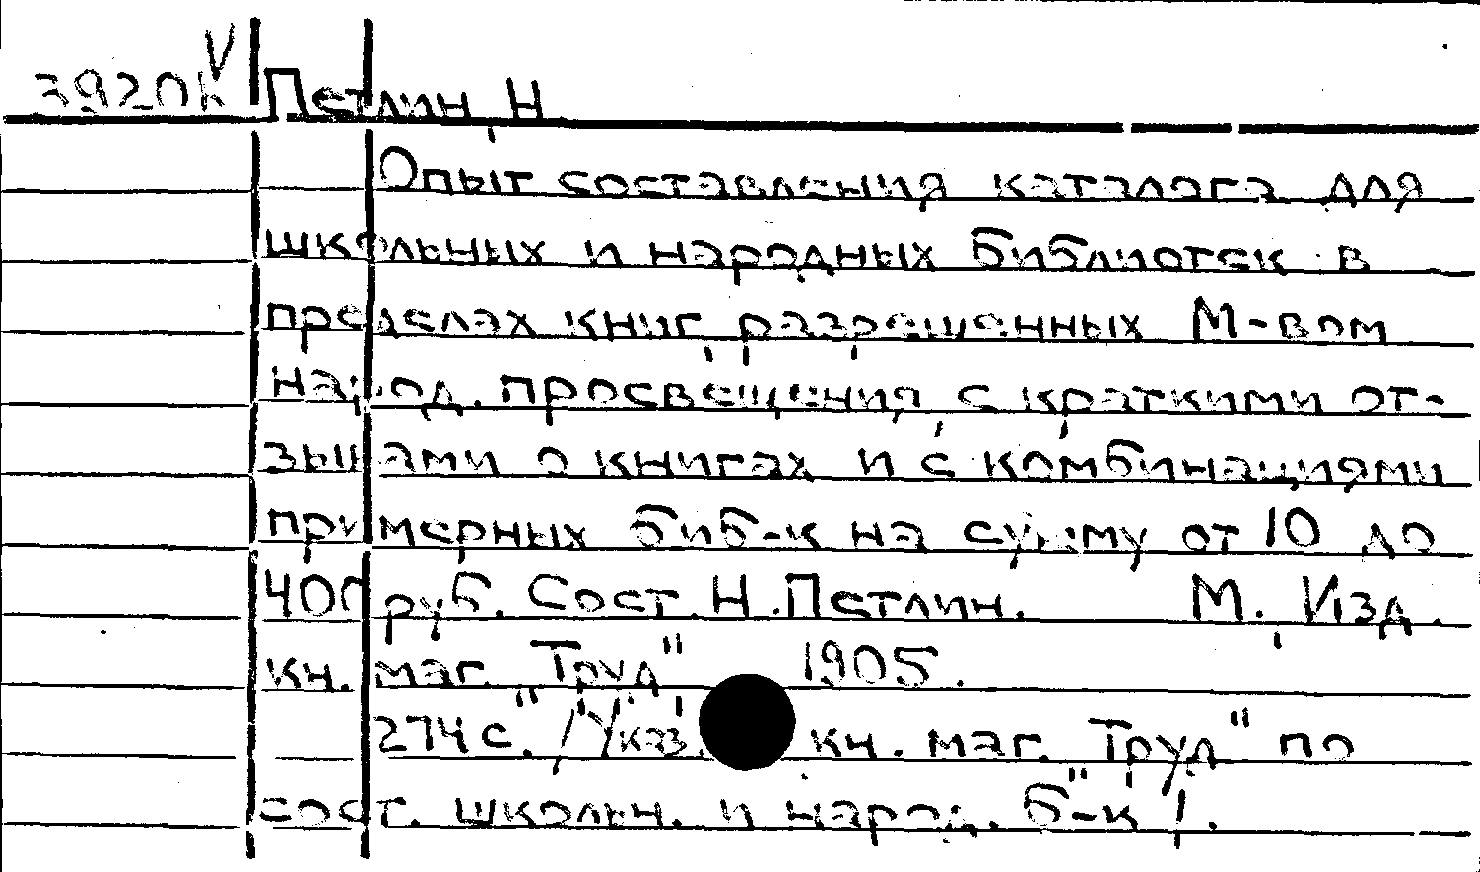 3920к V Петлин, Н
Опыт составления каталога для
школьных и народных библиотек в
пределах книг, разрешенных М-вом
народ. просвещения, с краткими от-
зывами о книгах и с комбинациями
примерных биб-к на сумму от 10 до
400 руб. Сост. Н. Петлин. М. Изд.
кн. маг. "Труд", 1905.
274 с. /Указ. кн. маг. "Труд" по
сост. школьн. и народ. б-к/.